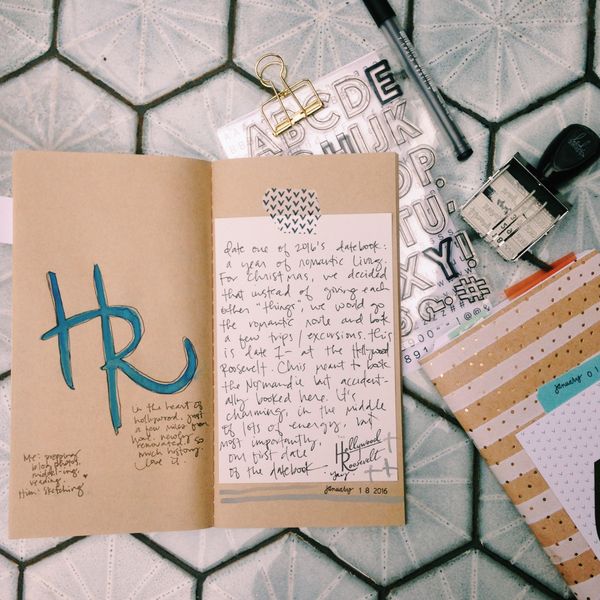 HR
in the heart of
hollywood. just
a few miles from
home. newly
renovated, so
much history
love it.
Me: prepping
blog photos.
reading.
Him: sketching
date one of 2016's datebook:
a year of romantic living.
For Christmas, we decided
that instead of giving each
other "things", we would go
the romantic route and book
a few trips/excursions. this
is date 1- at the Hollywood
Roosevelt. Chris meant to book
the Normandie but accident-
ally booked here. It's
charming, in the middle
of lots of energy, but
most importantly,
our first date
of the datebook.
Hollywood
Roosevelt
yay
january 18 2016
ABCDE
HIJK
OP.
TU,
XYZ!
#
january 01